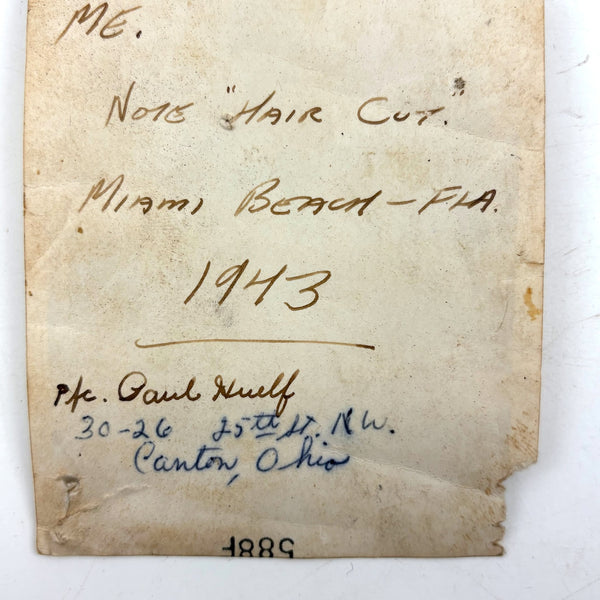 ME.
NOTE "HAIR CUT."
MIAMI BEACH - FLA.
1943
Pfc. Paul Huelf
30-26 25th St. N.W.
Canton, Ohio
588F